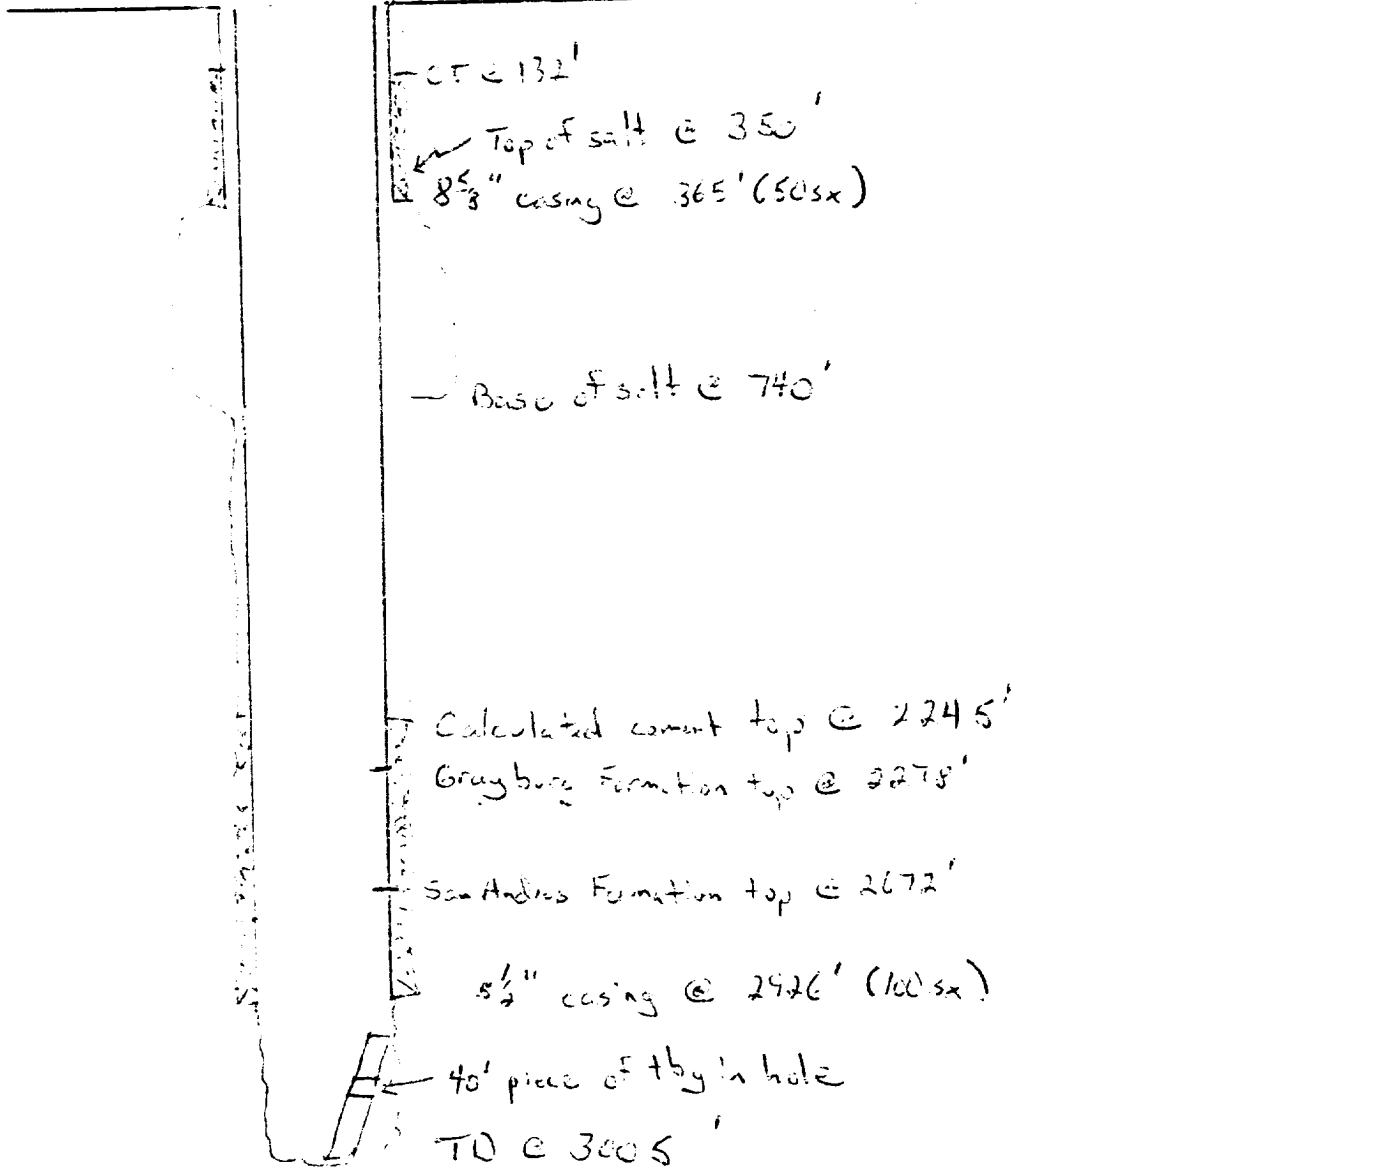 CT @ 132'
Top of salt @ 350'
8 5/8" casing @ 365' (50sx)
Base of salt @ 740'
Calculated cement top @ 2245'
Grayburg Formation top @ 2278'
San Andres Formation top @ 2672'
5 1/2" casing @ 2926' (100 sx)
40' piece of tbg in hole
TD @ 3005'